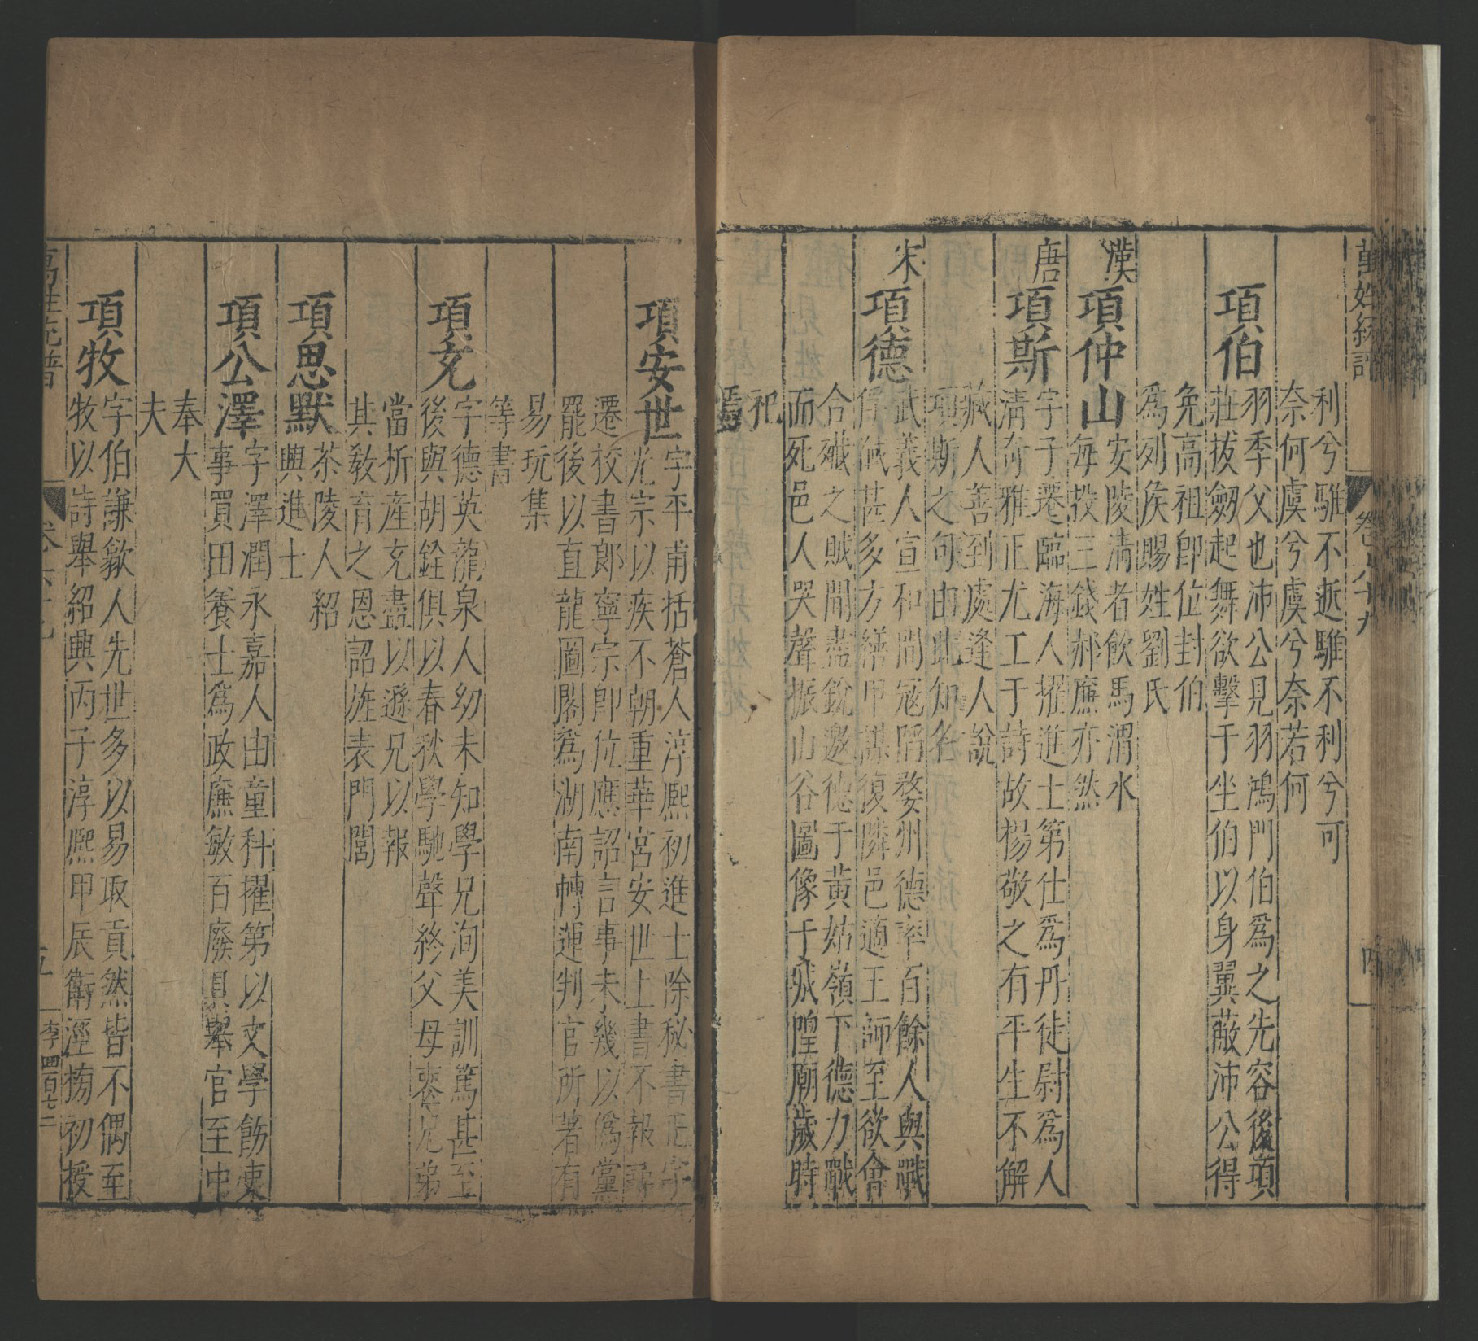 萬姓統譜 卷之八十九 四
利兮騅不逝騅不利兮可
奈何虞兮虞兮奈若何
項伯
羽季父也沛公見羽鴻門伯爲之先容後項
莊拔劒起舞欲擊于坐伯以身翼蔽沛公得
免高祖卽位封伯
爲列侯賜姓劉氏
漢
項仲山
安陵清者飲馬渭水
每投三錢郝廉亦然
唐
項斯
字子遷臨海人擢進士第仕爲丹徒尉爲人
清奇雅正尤工于詩故楊敬之有平生不解
藏人善到處逢人說
項斯之句由此知名
宋
項德
武義人宣和間冦陷婺州德率百餘人與戰
俘馘甚多方繕甲謀復隣邑適王師至欲會
合殱之賊間盡銳邀德于黃姑嶺下德力戰
而死邑人哭聲振山谷圖像于城隍廟歲時
祀
焉
項安世
字平甫括蒼人淳熈初進士除秘書正字
光宗以疾不朝重華宮安世上書不報尋
遷校書郎寧宗卽位應詔言事未幾以僞黨
罷後以直龍圖閣爲湖南轉運判官所著有
易玩集
等書
項充
字德英龍泉人幼未知學兄洵美訓篤甚至
後與胡銓俱以春秋學馳聲終父母喪兄弟
當析產充盡以遜兄以報
其敎育之恩詔旌表門閭
項思默
茶陵人紹
興進士
項公澤
字澤潤永嘉人由童科擢第以文學飭吏
事買田養士爲政廉敏百廢俱舉官至中
奉大
夫
項牧
字伯謙歙人先世多以易取貢然皆不偶至
牧以詩舉紹興丙子淳熈甲辰衛涇榜初授
萬姓統譜
五
李四百七二